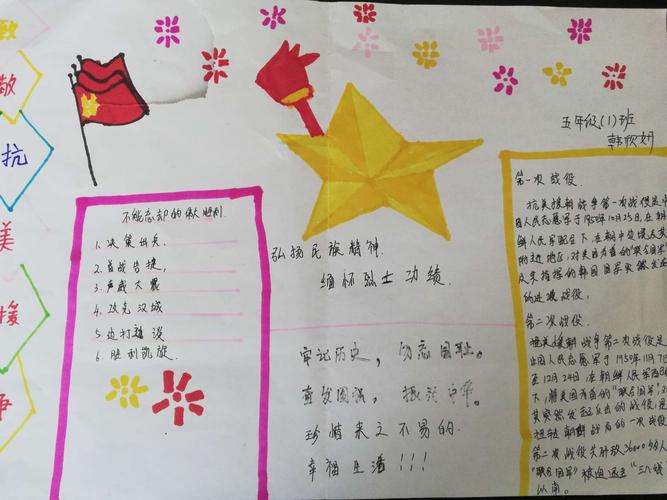 致
敬
抗
美
援
争
五年级(1)班
韩欣妍
不能忘却的伟大胜利
1.决策出兵
2.首战告捷,
3.声威大震
4.攻克汉城
5.边打边谈
6.胜利凯旋.
弘扬民族精神
缅怀烈士功绩.
牢记历史,勿忘国耻。
奋发图强,振兴中华。
珍惜来之不易的
幸福生活!!!
第一次战役.
抗美援朝战争第一次战役是中
国人民志愿军于1950年10月25日,在朝
鲜人民军配合下,在朝中边境
附边地区,对美国为首的“联合国军”
及其指挥的韩国国军实施
的进攻战役,
第二次战役.
抗美援朝战争第二次战役是
中国人民志愿军于1950年11月7日
至12月24日,在朝鲜人民军
下,美国为首的“联合国军”,
其突然发起反击的战役,是
朝鲜战局的一次战役
第二次战役共歼敌36000多人
“联合国军”被迫退至“三八线”
以南。